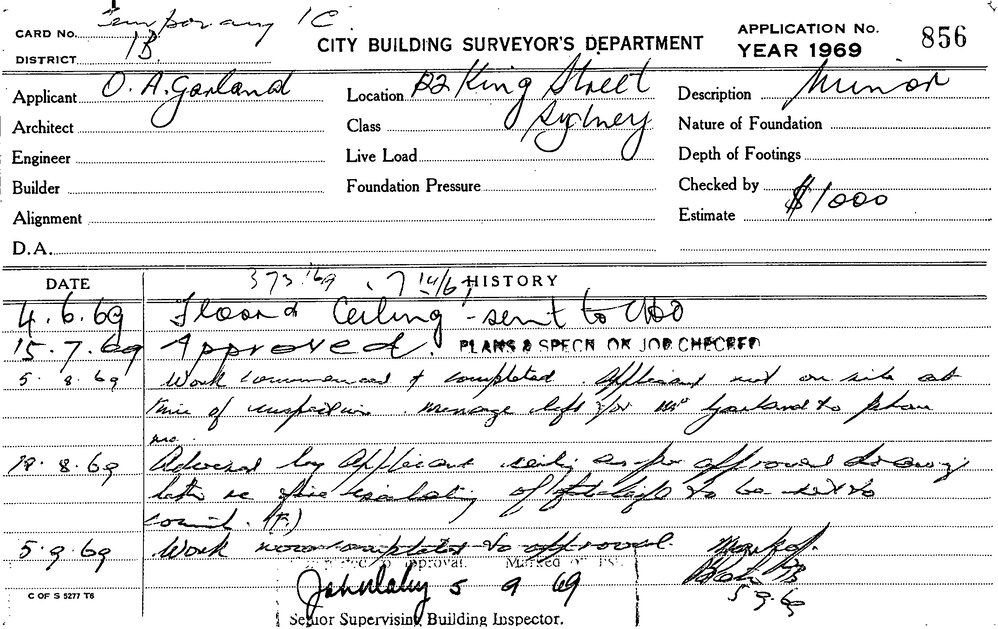 Temporary 1C
CARD No.
DISTRICT 1B
CITY BUILDING SURVEYOR'S DEPARTMENT
APPLICATION No. 856
YEAR 1969
Applicant O. A. Garland
Location 82 King Street
Description Minor
Architect
Class Sydney
Nature of Foundation
Engineer
Live Load
Depth of Footings
Builder
Foundation Pressure
Checked by
Alignment
Estimate $1000
D.A.
373 169
DATE
HISTORY
4.6.69 Floor & Ceiling - sent to
15.7.69 Approved. PLANS & SPECN ON JOB CHECKED
5.8.69 Work commenced & completed. Applicant not on site at
time of inspection. Message left for Mr Garland to phone
me.
8.69 Advised by Applicant ceiling as per approved drawing
letter re fire of to be sent to
council.
5.9.69 Work now completed to approval.
approval. Marked off
John 5 9 69
5.9.69
Senior Supervising Building Inspector.
C OF S 5277 T6